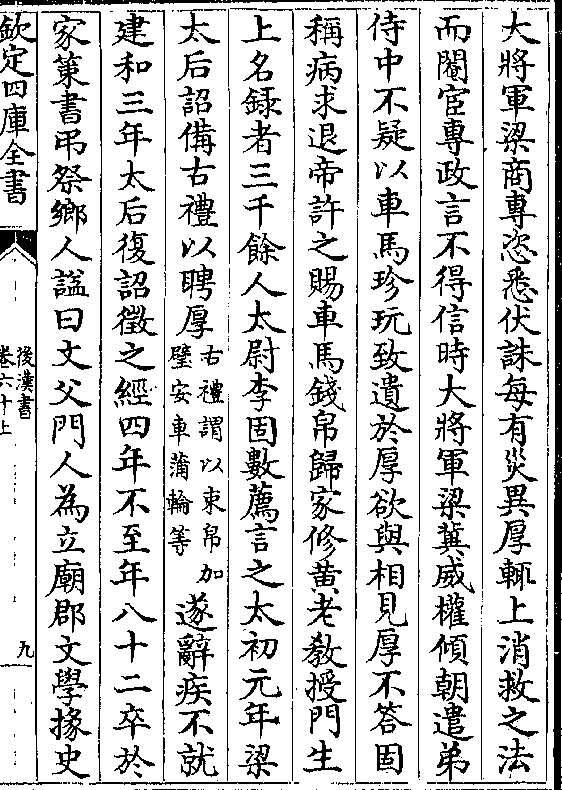 大將軍梁商專恣悉伏誅每有災異厚輒上消救之法
而閹宦專政言不得信時大將軍梁冀威權傾朝遣弟
侍中不疑以車馬珍玩致遺於厚欲與相見厚不答固
稱病求退帝許之賜車馬錢帛歸家修黄老教授門生
上名録者三千餘人太尉李固數薦言之太初元年梁
太后詔備古禮以聘厚古禮謂以束帛加璧安車蒲輪等遂辭疾不就
建和三年太后復詔徵之經四年不至年八十二卒於
家策書弔祭鄉人諡曰文父門人為立廟郡文學掾史
欽定四庫全書
後漢書
卷六十上
九